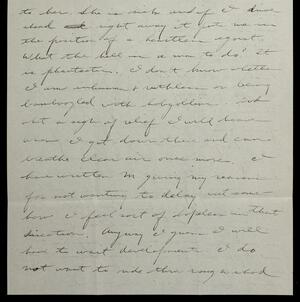 to her. She is sick and if I
ahead right away it puts me in
the position of a heartless egoist.
What the hell is a man to do? It
is phantastic. I don't know whether
I am inhuman & ruthless or being
bamboozled with hobgoblins.
what a sigh of relief I will heave
when I get down there and can
breathe clear air once more. I
have written M giving my reasons
for not wanting to delay yet some-
how I feel sort of hopeless in that
direction. Anyway I guess I will
have to wait developments. I do
not want to ride thru rough shod